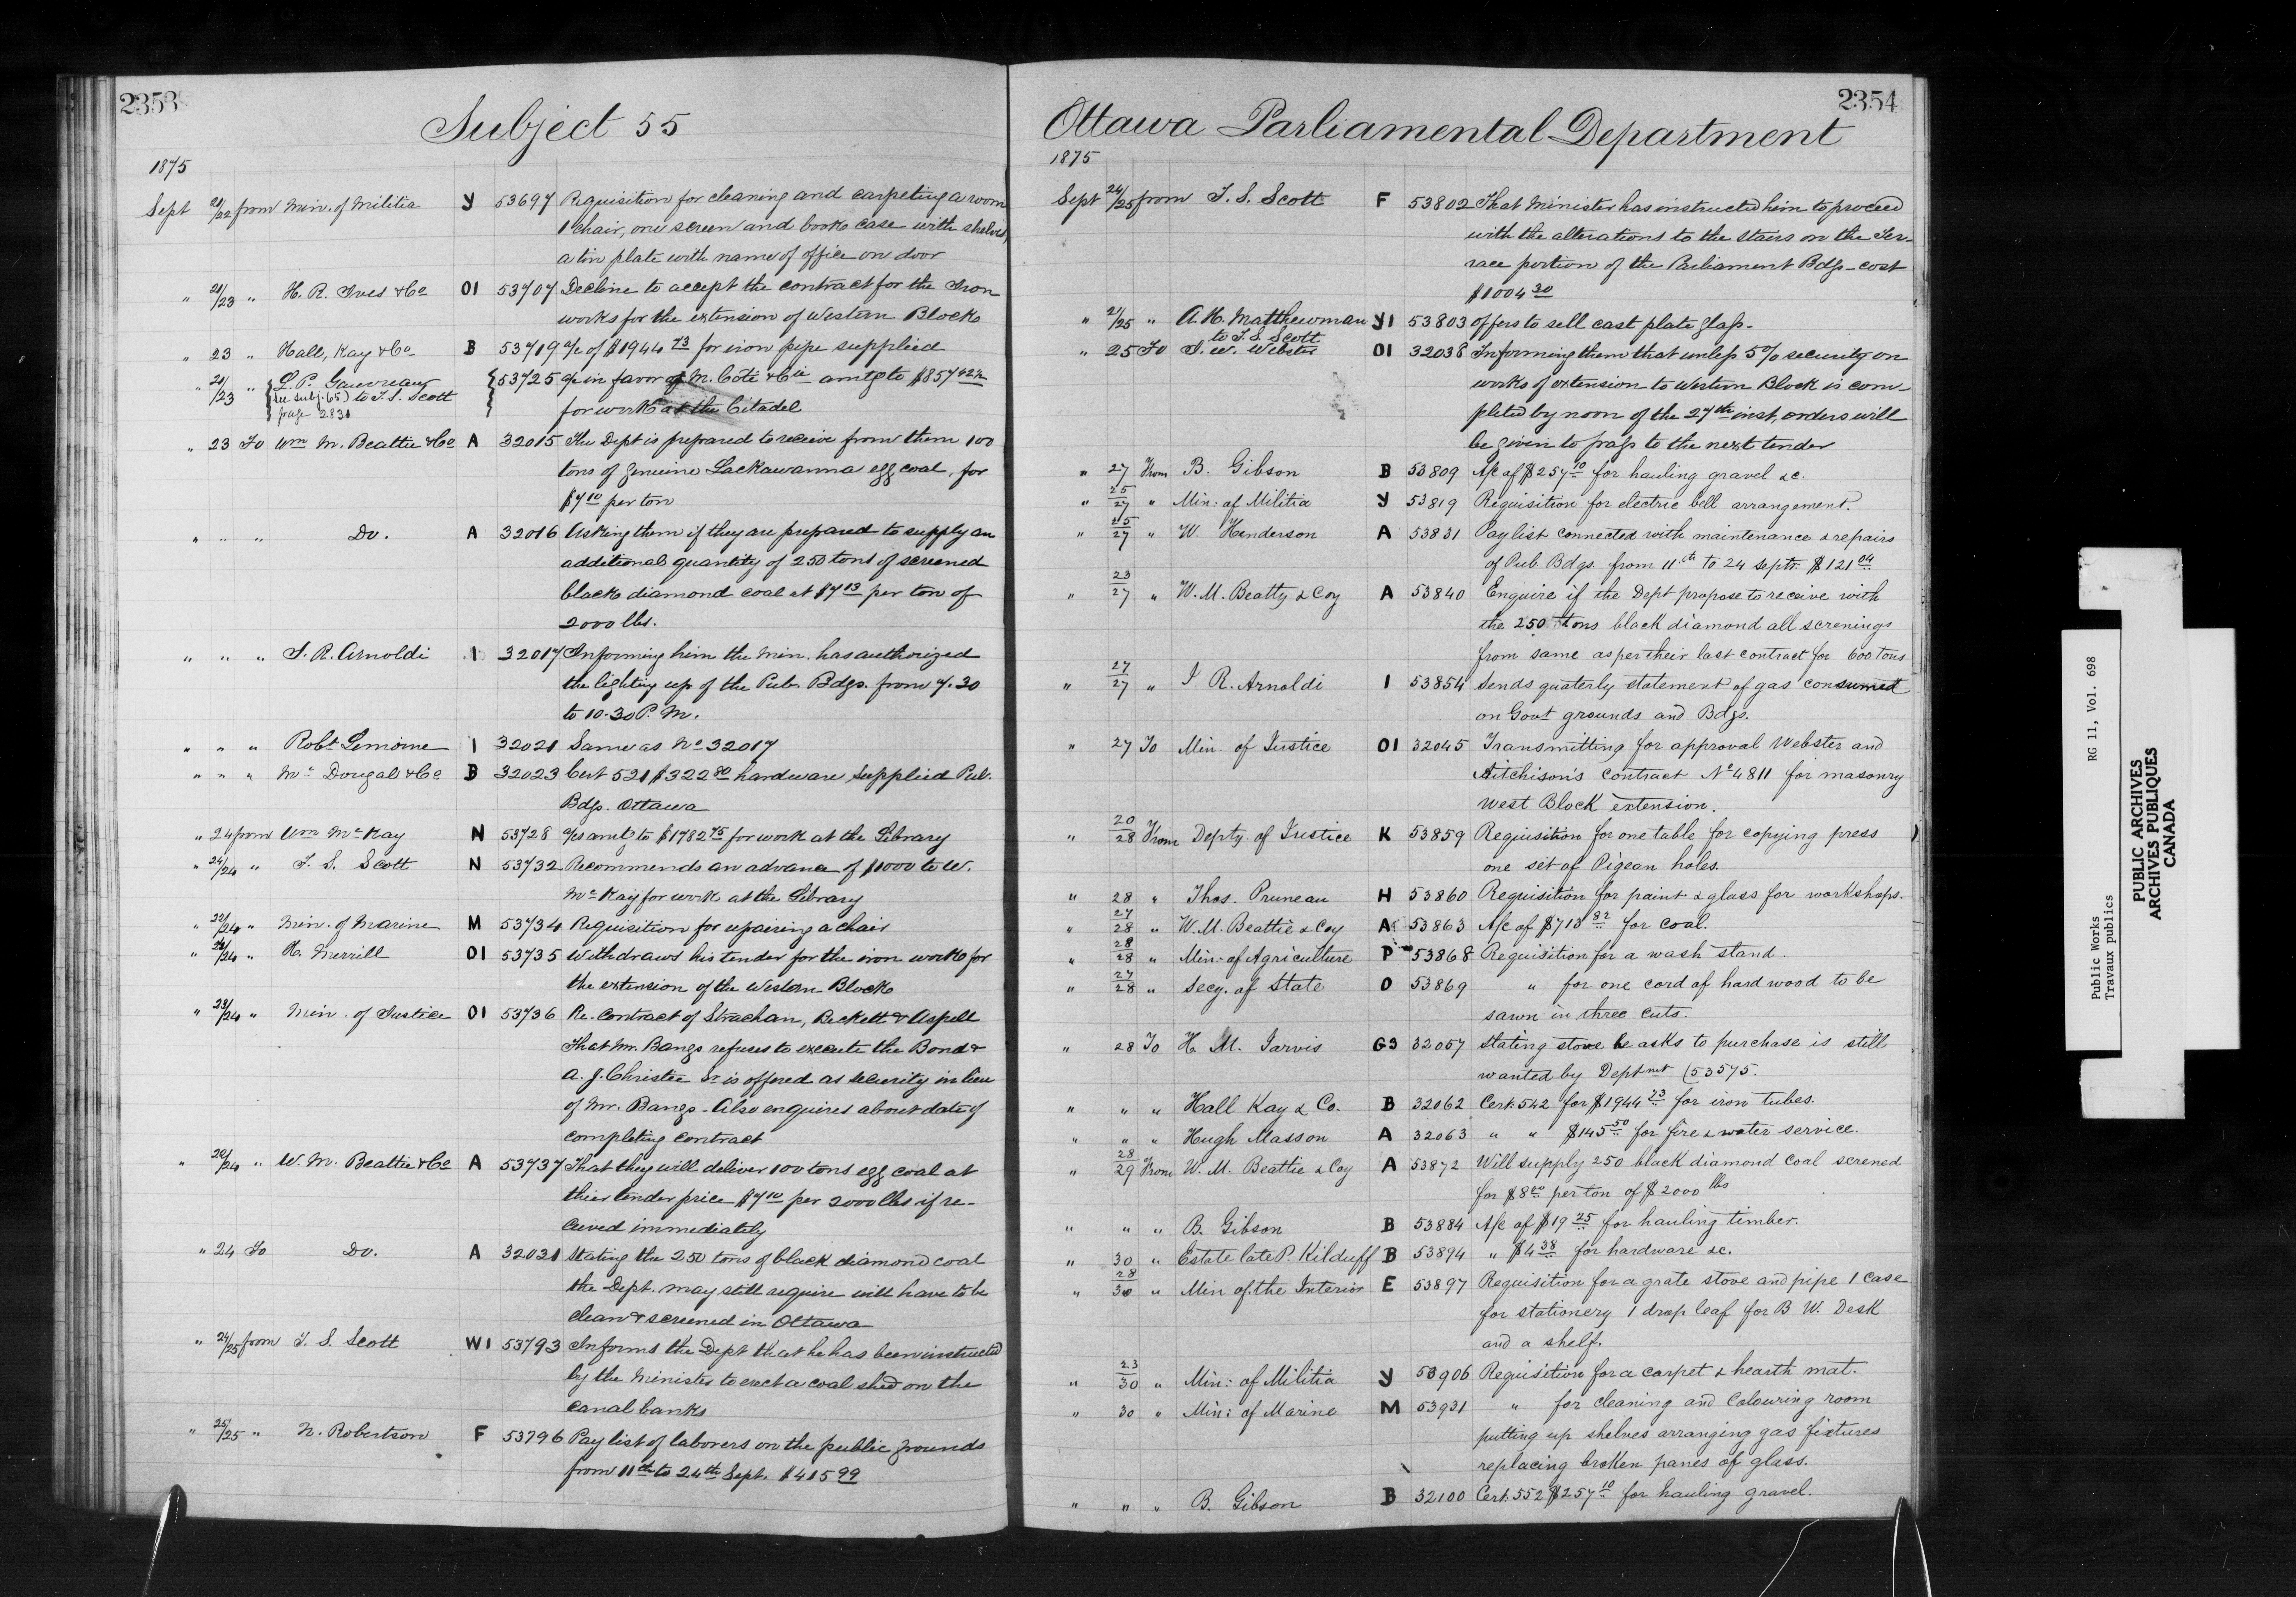 2353
Subject 55
1875
Sept 21/22 from Min. of Militia Y 53697 Requisition for cleaning and carpeting a room
1 chair, one screen and book case with shelves,
a tin plate with name of office on door
" 21/23 " H. R. Ives & Co O1 53707 Decline to accept the contract for the Iron
works for the extension of Western Block
" 23 " Hall, Kay & Co B 53719 a/c of $1944 73 for iron pipe supplied
" 21/23 " L. P. Gauvreau 53725 a/c in favor of M. Coté & Cie amtg to $857
(see subj. 65) to T. S. Scott
page 2831
for work at the Citadel
" 23 To Wm M. Beattie & Co A 32015 The Dept is prepared to receive from them 100
tons of genuine Lackawanna egg coal, for
$7 10 per ton
" " " Do. A 32016 Asking them if they are prepared to supply an
additional quantity of 250 tons of screened
black diamond coal at $7 13 per ton of
2000 lbs.
" " " J. R. Arnoldi 1 32017 Informing him the Min. has authorized
the lighting up of the Pub. Bdgs. from 7.30
to 10.30 P. M.
" " " Robt Lemoine 1 32021 Same as No 32017
" " " Mc Dougal & Co B 32023 Cert 521 $322 80 hardware supplied Pub.
Bdgs. Ottawa
" 24 from Wm McKay N 53728 a/cs amtg to $1782 75 for work at the Library
" 24/24 " T. S. Scott N 53732 Recommends an advance of $1000 to W.
McKay for work at the Library
" 22/24 " Min. of Marine M 53734 Requisition for repairing a chair
" 23/24 " H. Merrill O1 53735 Withdraws his tender for the iron work for
the extension of the Western Block
" 23/24 " Min. of Justice O1 53736 Re-contract of Strachan, Beckett & Aspell
That Mr. Bangs refuses to execute the Bond &
A. J. Christie Sr is offered as security in lieu
of Mr. Bangs. Also enquires about date of
completing contract
" 20/24 " W. M. Beattie & Co A 53737 That they will deliver 100 tons egg coal at
thier tender price $7 10 per 2000 lbs if re-
ceived immediately
" 24 To Do. A 32031 Stating the 250 tons of black diamond coal
the Dept. may still require will have to be
clean & screened in Ottawa
" 24/25 from T. S. Scott W1 53793 Informs the Dept that he has been instructed
by the Minister to erect a coal shed on the
canal banks
" 25/25 " N. Robertson F 53796 Pay list of laborers on the public grounds
from 11th to 24th Sept. $415 99
2354
Ottawa Parliamental Department
1875
Sept 24/25 from T. S. Scott F 53802 That Minister has instructed him to proceed
with the alterations to the stairs on the Ter-
race portion of the Parliament Bdgs - cost
$1004 30
" 21/25 " A. H. Matthewman Y1 53803 offers to sell cast plate glass.
to T. S. Scott
" 25 To J. W. Webster O1 32038 Informing them that unless 5% security on
works of extension to Western Block is com-
pleted by noon of the 27th inst, orders will
be given to pass to the next tender
" 27 From B. Gibson B 53809 A/c of $257 10 for hauling gravel &c.
" 25/27 " Min: of Militia Y 53819 Requisition for electric bell arrangement.
" 25/27 " W. Henderson A 53831 Paylist connected with maintenance & repairs
of Pub Bdgs. from 11th to 24 Septr. $121 04
" 23/27 " W. M. Beatty & Coy A 53840 Enquire if the Dept propose to receive with
the 250 tons black diamond all screnings
from same as per their last contract for 600 Tons
" 27/27 " J R. Arnoldi 1 53854 Sends quaterly statement of gas consumed
on Govt grounds and Bdgs.
" 27 To Min. of Justice O1 32045 Transmitting for approval Webster and
Aitchison's contract No 4811 for masonry
West Block extension.
" 20/28 From Depty. of Justice K 53859 Requisition for one table for copying press
one set of Pigean holes.
" 28 " Thos. Pruneau H 53860 Requisition for paint & glass for workshops.
" 27/28 " W. M. Beattie & Coy A 53863 A/c of $713 82 for coal.
" 28/28 " Min: of Agriculture P 53868 Requisition for a wash stand.
" 27/28 " Secy. of State O 53869 " for one cord of hard wood to be
sawn in three cuts.
" 28 To H. M. Jarvis G3 32057 Stating stove he asks to purchase is still
wanted by Deptmt (53575.
" " " Hall Kay & Co. B 32062 Cert. 542 for $1944 73 for iron tubes.
" " " Hugh Masson A 32063 " " $145 50 for fire & water service.
" 28/29 From W. M. Beattie & Coy A 53872 Will supply 250 black diamond coal screned
for $8 00 per ton of $2000 lbs
" " " B. Gibson B 53884 A/c of $19 25 for hauling timber.
" 30 " Estate late P. Kilduff B 53894 " $4 38 for hardware &c.
" 28/30 " Min of the Interior E 53897 Requisition for a grate stove and pipe 1 case
for stationery 1 drop leaf for B W. Desk
and a shelf.
" 23/30 " Min: of Militia Y 53906 Requisition for a carpet & hearth mat.
" 30 " Min: of Marine M 53931 " for cleaning and Colouring room
putting up shelves arranging gas fixtures
replacing broken panes of glass.
" " " B. Gibson B 32100 Cert. 552 $257 10 for hauling gravel.
Public Works RG 11, Vol. 698
Travaux publics
PUBLIC ARCHIVES
ARCHIVES PUBLIQUES
CANADA